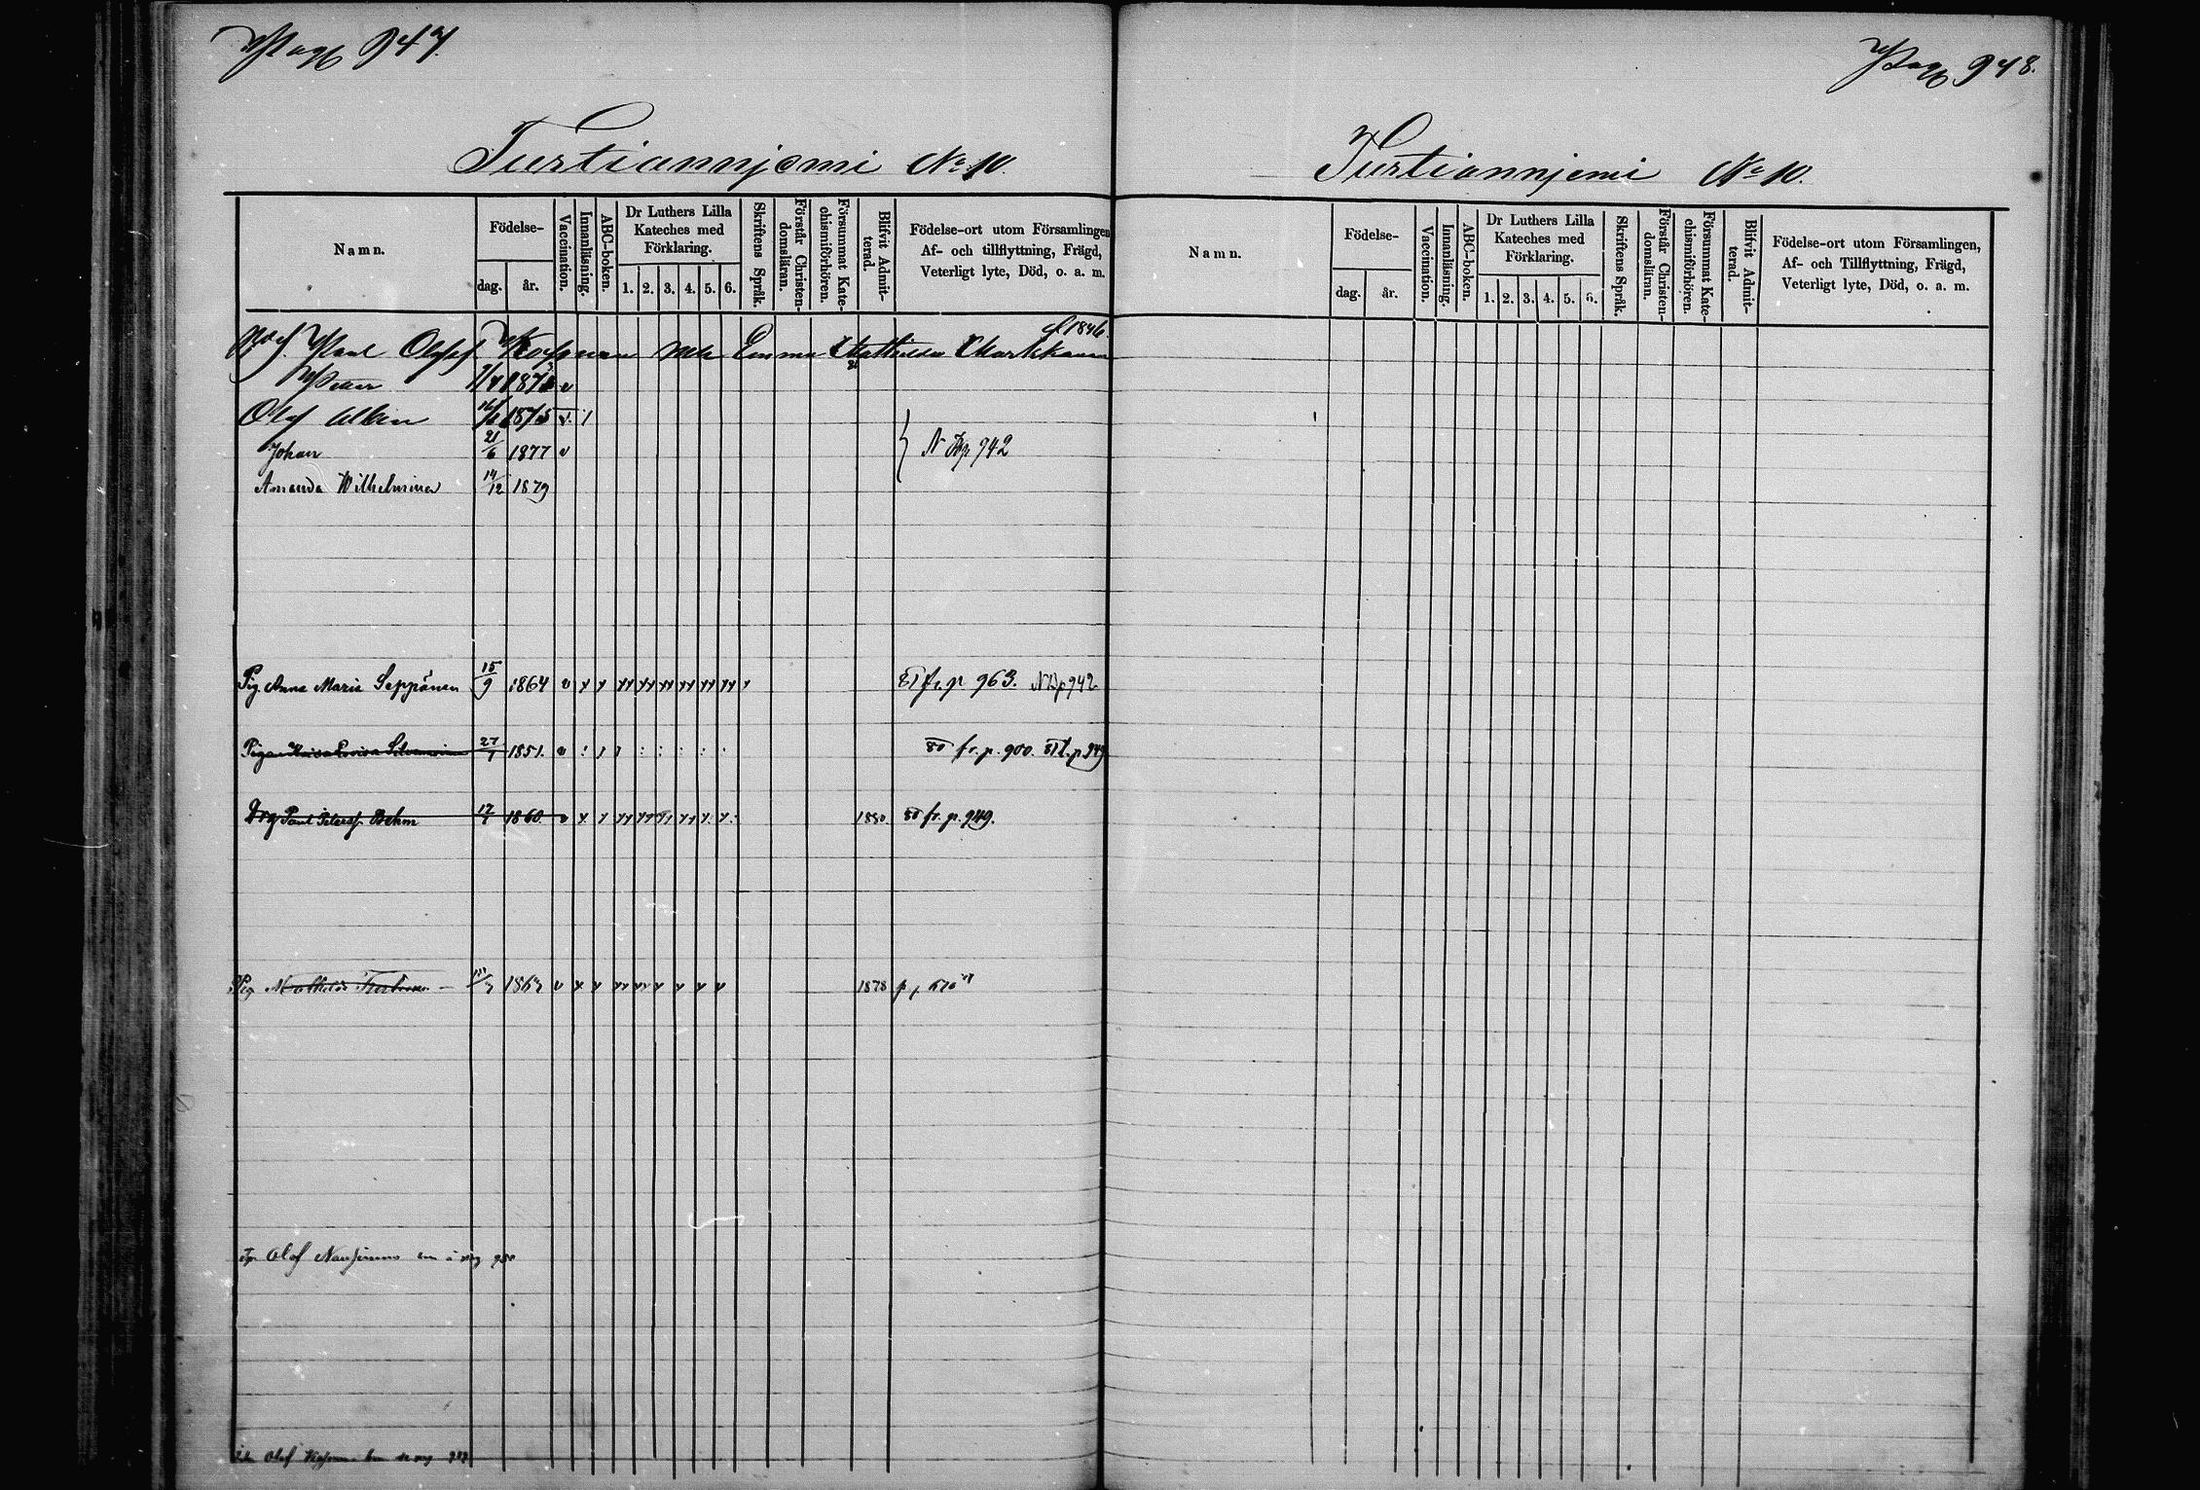 Pag 947.
Turtianniemi No 10.
Namn.
Födelse-
dag.
år.
Vaccination.
Innanläsning.
ABC-boken.
Dr Luthers Lilla
Kateches med
Förklaring.
1. 2. 3. 4. 5. 6.
Skriftens Språk.
Förstår Christen-
domsläran.
Försummat Kate-
chismiförhören.
Blifvit Admit-
terad.
Födelse-ort utom Församlingen
Af- och tillflyttning, Frägd,
Veterligt lyte, Död, o. a. m.
Paul Olofsf. Emma Mathilda f. 1846
Petter 187
Olof Albin 1875
Johan 21/6 1877 v
N Bp 942
Amanda Wilhelmina 14/12 1879
Pig. Anna Maria Seppänen 15/9 1864 v 81 fr. p 963. N Bp 942
Piga Lovisa 27/1 1851. v 80 fr. p. 900. 81 t. p 949
Drg Paul Petersf. Behm 17/1 1860. v 1880. 80 fr. p. 949.
Pig Mathilda 186 v 1878
Olof
Olof
Pag 948.
Turtianniemi No 10.
Namn.
Födelse-
dag.
år.
Vaccination.
Innanläsning.
ABC-boken.
Dr Luthers Lilla
Kateches med
Förklaring.
1. 2. 3. 4. 5. 6.
Skriftens Språk.
Förstår Christen-
domsläran.
Försummat Kate-
chismiförhören.
Blifvit Admit-
terad.
Födelse-ort utom Församlingen,
Af- och Tillflyttning, Frägd,
Veterligt lyte, Död, o. a. m.